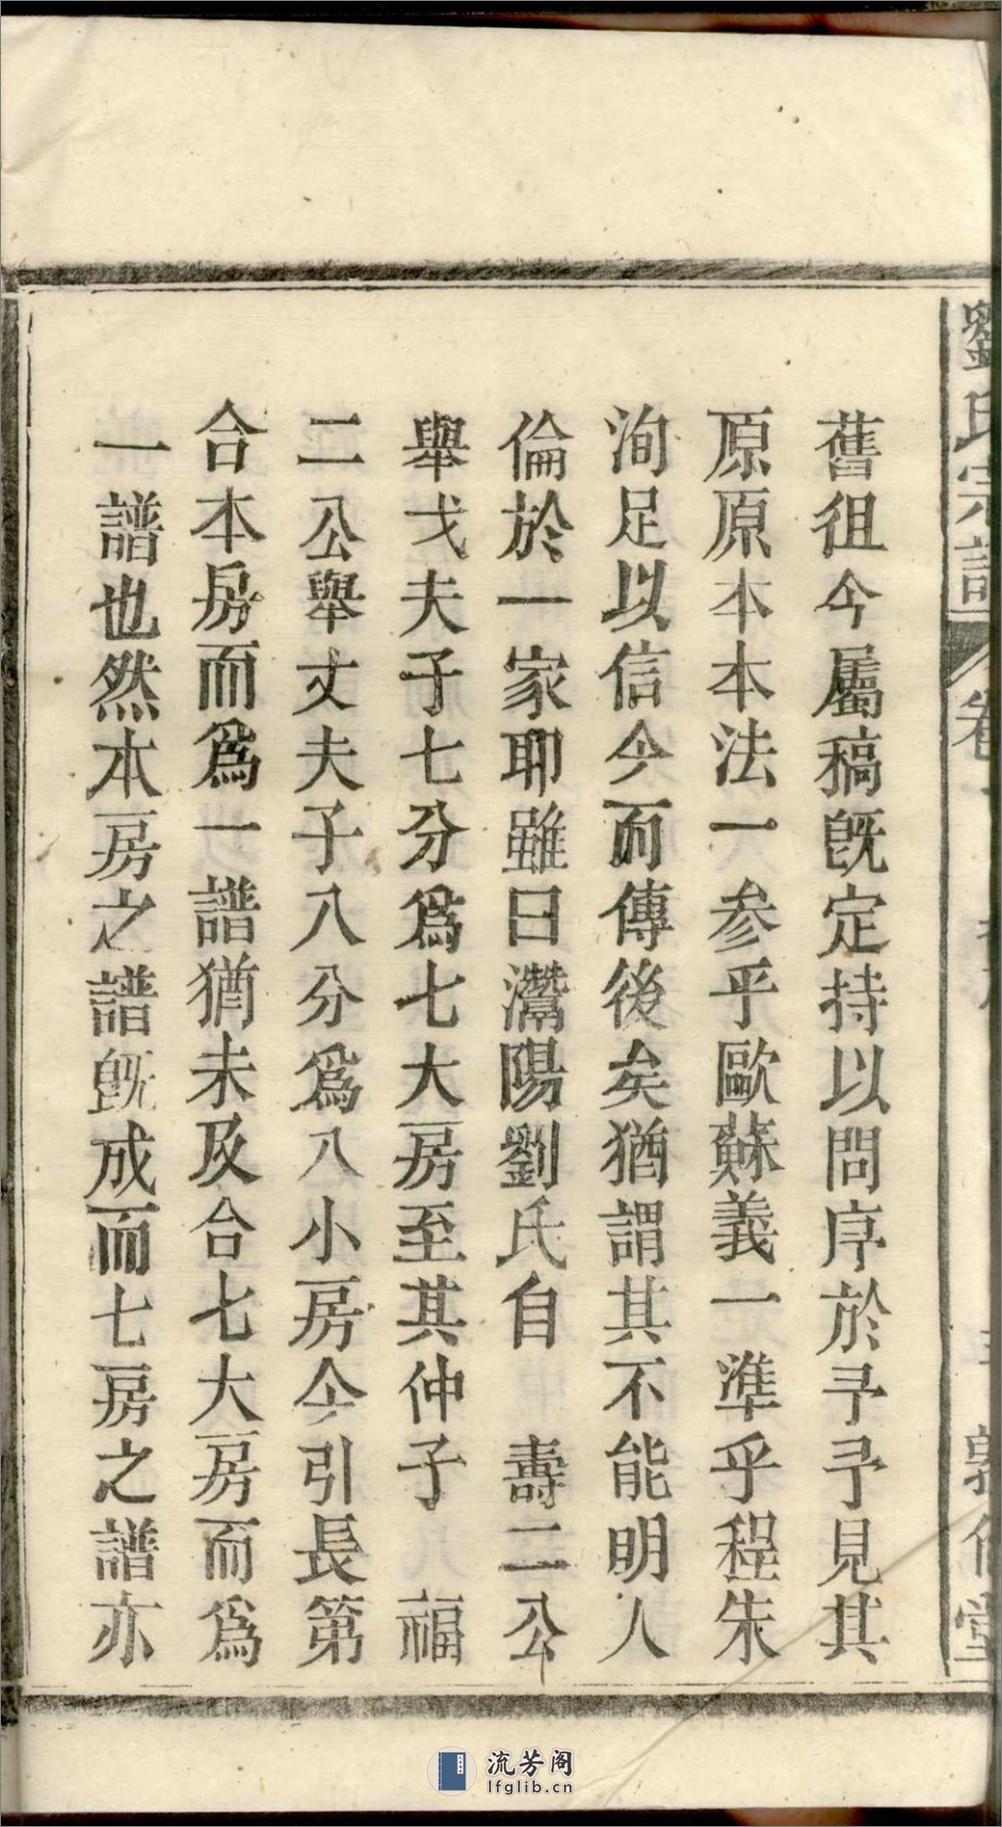 劉氏宗譜
舊徂今屬稿既定持以問序於予予見其
原原本本法一參乎歐蘇義一準乎程朱
洵足以信今而傳後矣猶謂其不能明人
倫於一家耶雖曰灊陽劉氏自　壽二公
舉弋夫子七分爲七大房至其仲子　福
二公舉丈夫子八分爲八小房今引長第
合本房而爲一譜猶未及合七大房而爲
一譜也然本房之譜既成而七房之譜亦
流芳阁
lfglib.cn